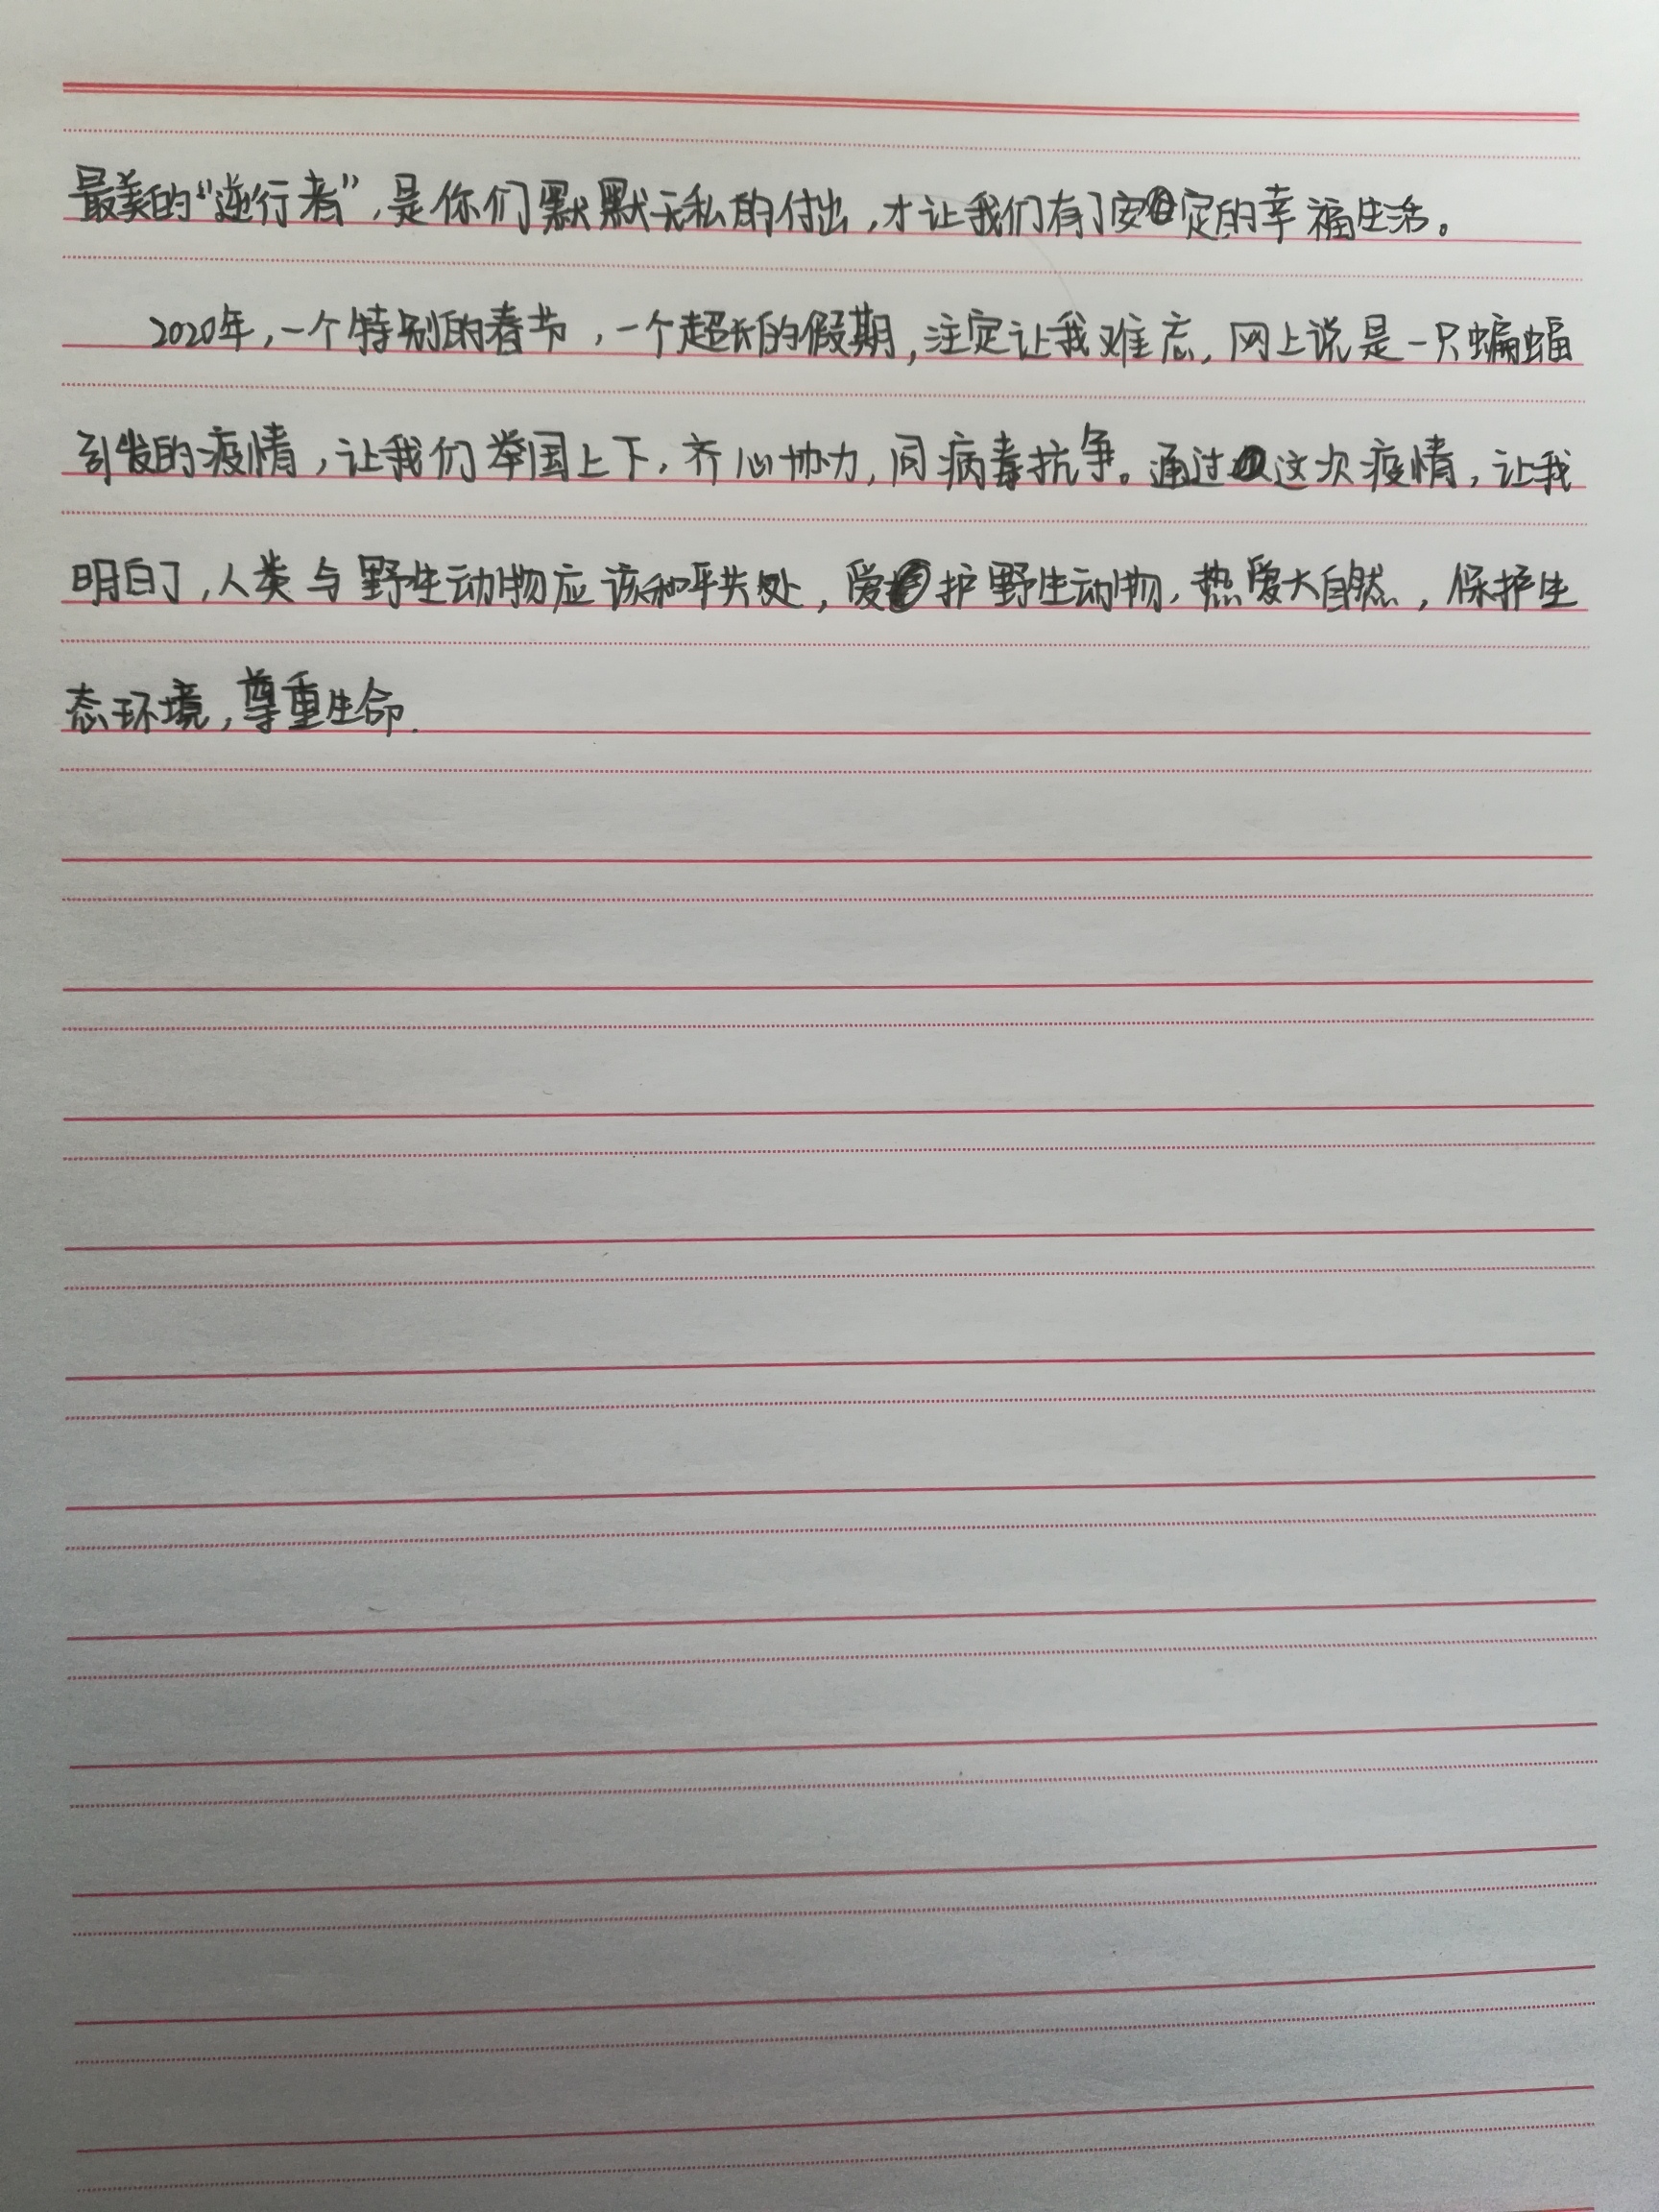 最美的“逆行者”,是你们默默无私的付出,才让我们有了安定的幸福生活。
2020年,一个特别的春节,一个超长的假期,注定让我难忘,网上说是一只蝙蝠
引发的疫情,让我们举国上下,齐心协力,同病毒抗争。通过这次疫情,让我
明白了,人类与野生动物应该和平共处,爱护野生动物,热爱大自然,保护生
态环境,尊重生命.